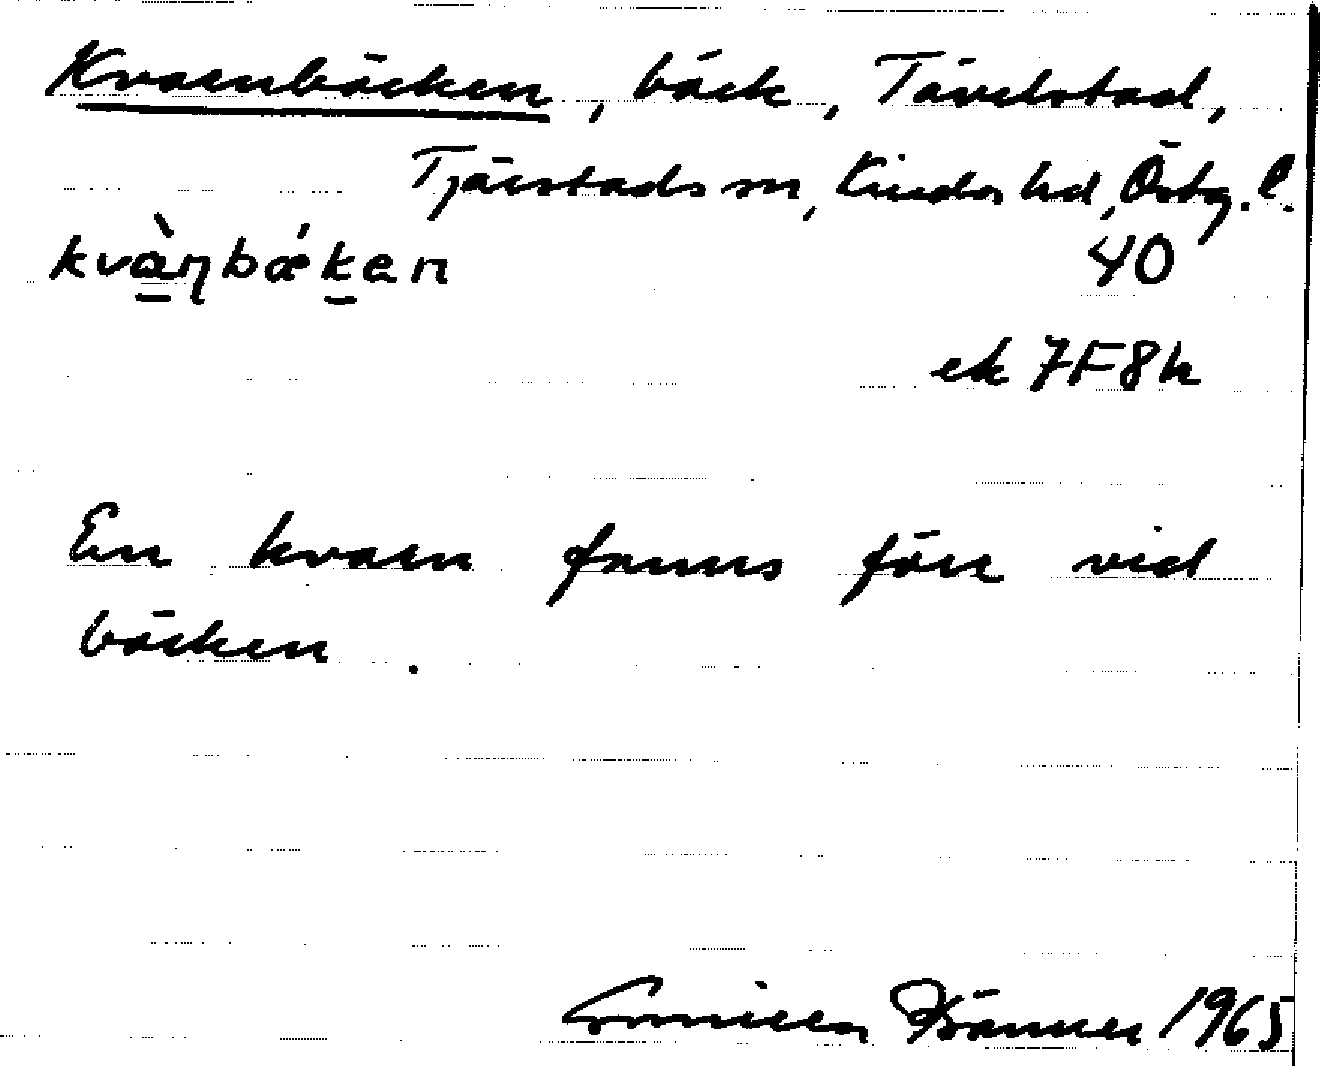 Kvarnbäcken, bäck, Tävelstad,
Tjärstads sn, Kinds hd, Östg. l.
kvàɳbǽken 40
ek 7F8h
En kvarn fanns förr vid
bäcken.
Bränner 1965